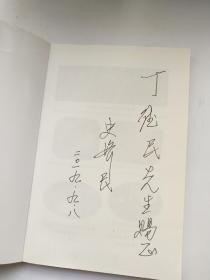 丁民先生赐正
史民
二〇一九.九.八